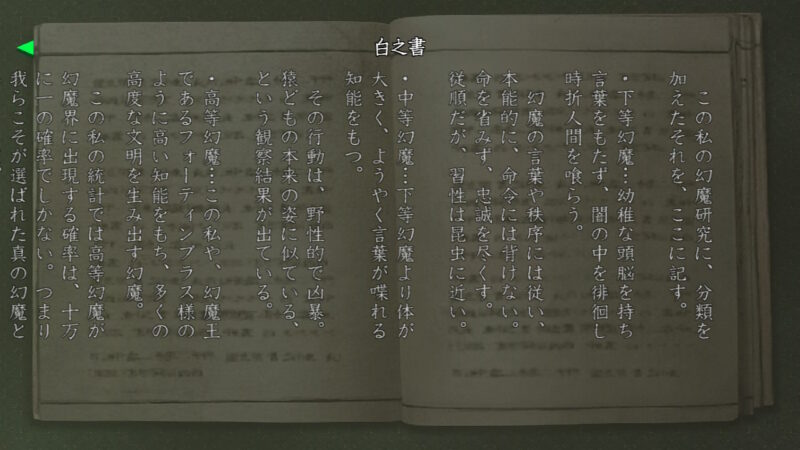 白之書
この私の幻魔研究に、分類を
加えたそれを、ここに記す。
・下等幻魔…幼稚な頭脳を持ち
言葉をもたず、闇の中を徘徊し
時折人間を喰らう。
幻魔の言葉や秩序には従い、
本能的に、命令には背けない。
命を省みず、忠誠を尽くす。
従順だが、習性は昆虫に近い。
・中等幻魔…下等幻魔より体が
大きく、ようやく言葉が喋れる
知能をもつ。
その行動は、野性的で凶暴。
猿どもの本来の姿に似ている、
という観察結果が出ている。
・高等幻魔…この私や、幻魔王
であるフォーティンブラス様の
ように高い知能をもち、多くの
高度な文明を生み出す幻魔。
この私の統計では高等幻魔が
幻魔界に出現する確率は、十万
に一の確率でしかない。つまり
我らこそが選ばれた真の幻魔と